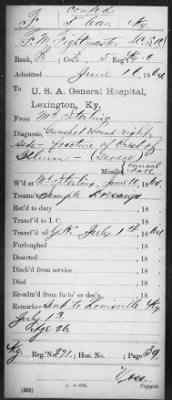 F. Confed Ky
F. M. Rightmaster C.S.A.
Rank, P Co. E. 5 Reg't Ky C
Admitted June 10, 1864
To U. S. A. General Hospital,
Lexington, Ky.
From Mt Sterling
Diagnosis, Gunshot Wound right
side – fracture of crest of
Ilium – (Severe)
Missile Conical Ball
W'd at Mt Sterling June 10, 1864.
Treatm't Simple Dressings
Ret'd to duty 18
Transf'd to I. C. 18
Transf'd to G.H. July 1st 1864
Furloughed 18
Deserted 18
Disch'd from service 18
Died 18
Re-adm'd from fu'lo' or des'n 18
Remarks: Sent to Louisville Ky
July 1st
Age 26
Ky. Reg. No. 271; Hos. No. ; Page 39
Voss.
(283) Copyist.